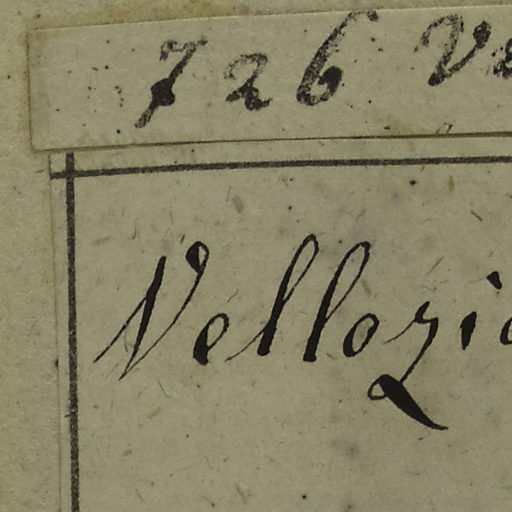 726 Ve
Vellozia